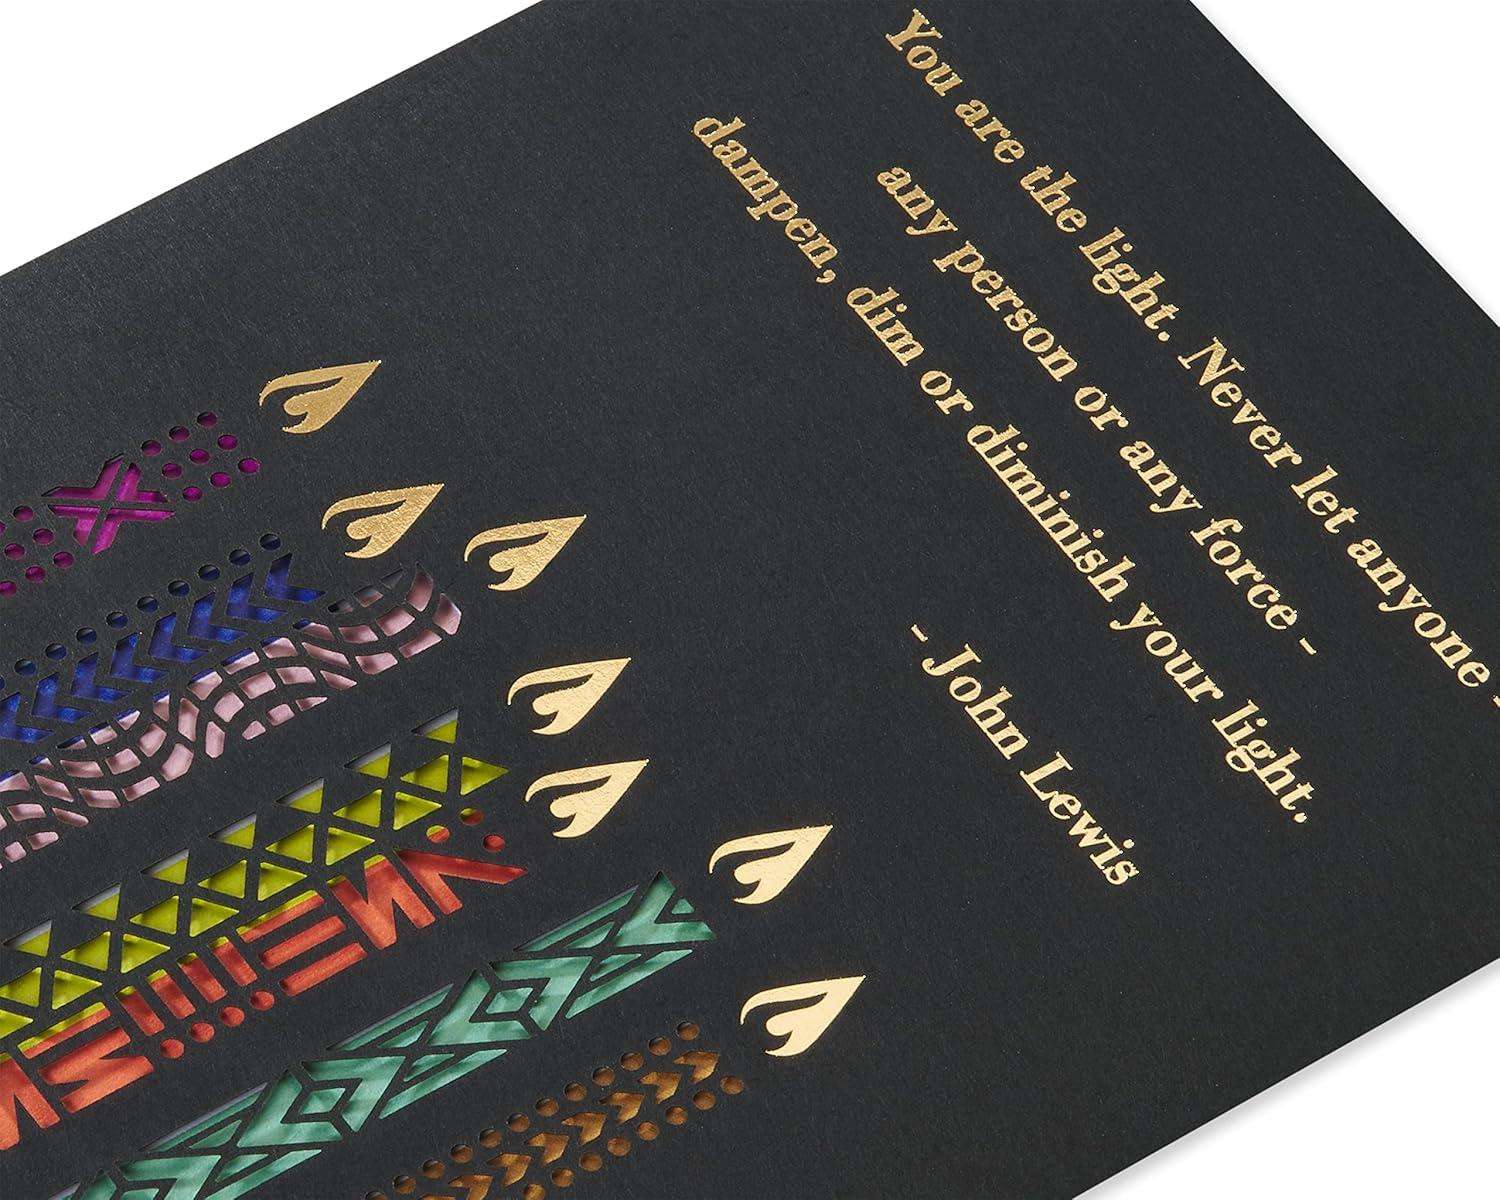 You are the light. Never let anyone
any person or any force -
dampen, dim or diminish your light.
- John Lewis